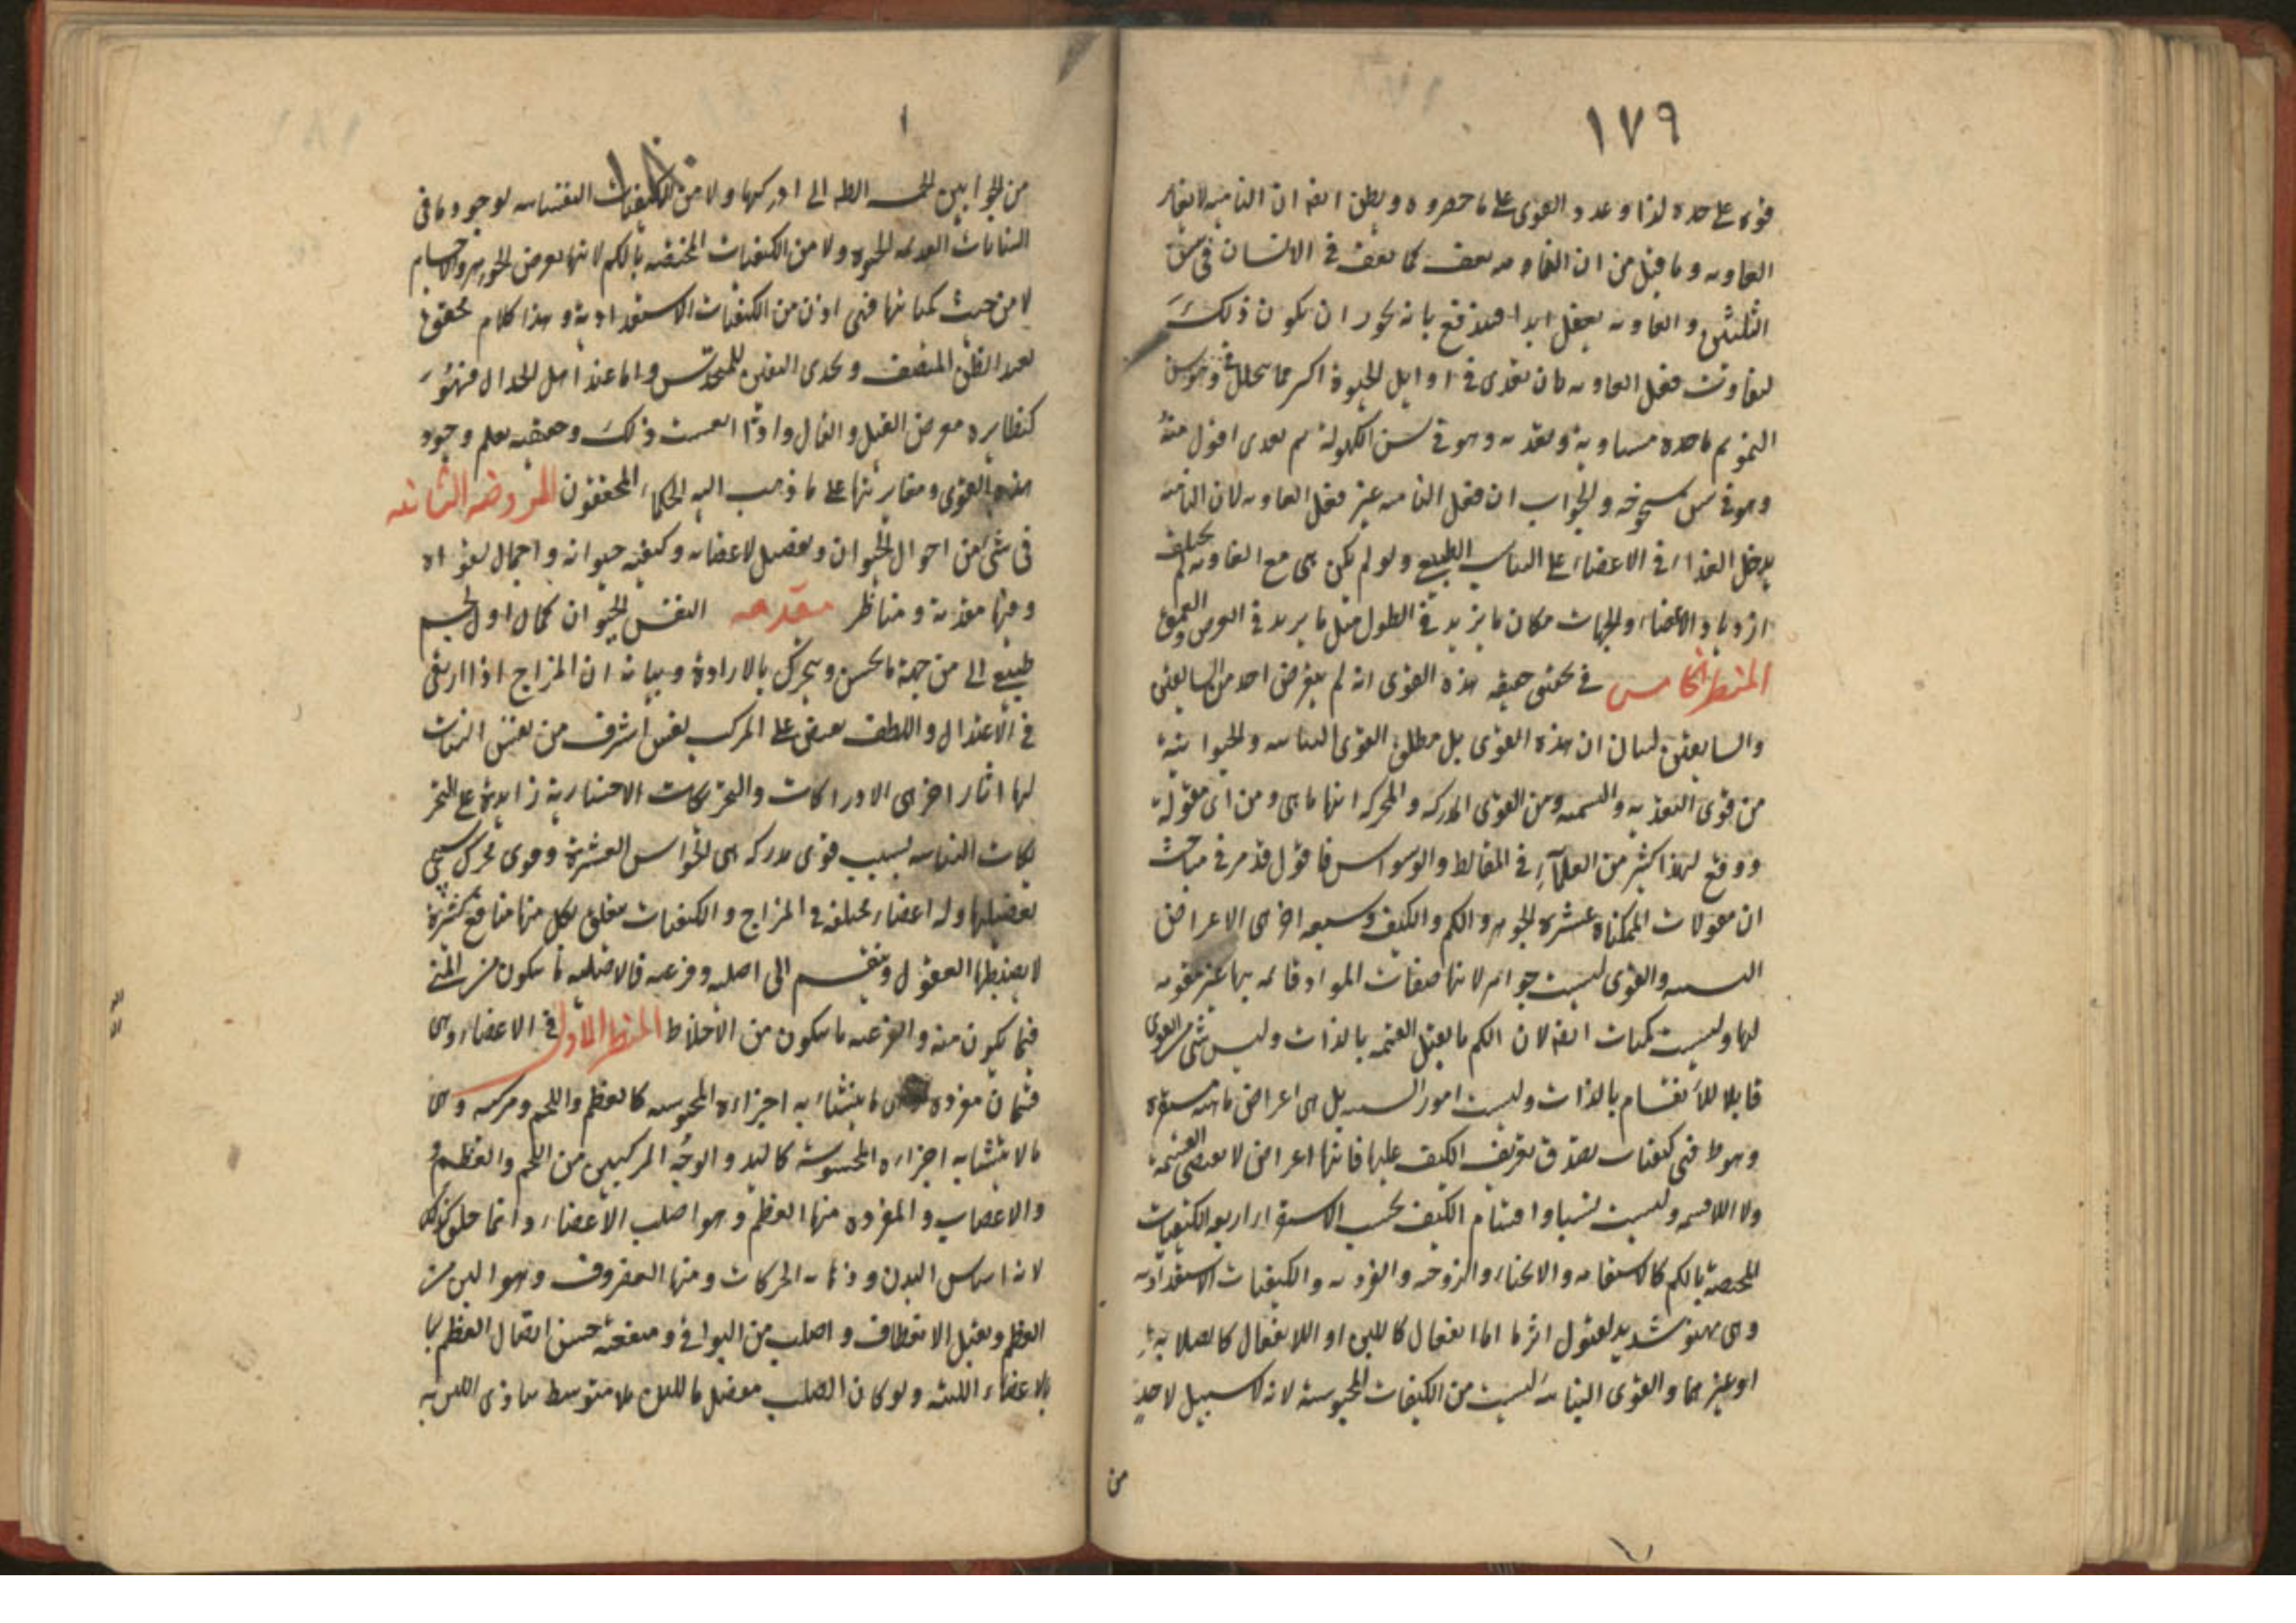 ١٧٩
قوة على حدة لذا وعدد القوى على ما حصروه ويظن ايضا ان النامية لا تغاير
الغاذية وما قيل من ان النامية تقف كما تقف في الانسان في سن
الثلثين والغاذية تفعل ابدا فمندفع بانه يجوز ان يكون ذلك
لتفاوت فعل الغاذية بان تغذى في اوايل الحيوة اكثر مما يتحلل وهو سن
النمو ثم ما حده مساوية وتغذيه وهو في سن الكهولة ثم تغدى اقول منه
وهو في سن شيخوخة والجواب ان فعل النامية غير فعل الغاذية لان النامية
يدخل الغذاء في الاعضاء على التناسب الطبيعي ولو لم يكن هى مع الغاذية لم يختلف
ازدياد الاعضاء والجهات مكان ما يزيد في الطول مثل ما يزيد في العرض والعمق
المنظر الخامس في تحقيق حقيقة هذه القوى انه لم يتعرض احد من السابقين
والسابقين لبيان ان هذه القوى بل مطلق القوى النباتية والحيوانية
من قوى التغذية والتنمية ومن القوى المدركة والمحركة انها ما هى ومن اى مقولة
ووقع لهذا كثير من العلماء في المغالط والوسواس فاقول قد مر في مباحث
ان مقولات الممكنات عشرة الجوهر والكم والكيف وسبعة اخرى الاعراض
النسبية والقوى ليست جواهر لانها صفات المواد قائمة بها غير مقومة
لها وليست كميات ايضا لان الكم ما يقبل القسمة بالذات وليس شئ من القوى
قابلا للانقسام بالذات وليست امور النسبية بل هى اعراض
فهى كيفيات يصدق تعريف الكيف عليها فانها اعراض لا تقتضى القسمة
ولا اللاقسمة وليست نسبا واقسام الكيف بحسب الاستقراء اربعة الكيفيات
المختصة بالكم كالاستقامة والانحناء والزوجية والفردية والكيفيات الاستعدادية
وهى تهيؤ شديد لقبول اثر ما اما انفعال كاللين او اللا انفعال كالصلابة
او غيرهما والقوى النباتية ليست من الكيفيات المحسوسة لانه لا سبيل لاحد
من
١٨٠
من الحواس الخمسة الظاهرة الى ادراكها ولا من الكيفيات النفسانية لوجودها في
النباتات العديمة الحيوة ولا من الكيفيات المختصة بالكم لانها تعرض للجوهر والاجسام
لا من حيث كمياتها فهى اذن من الكيفيات الاستعدادية وهذا كلام محقق
يفيد الظن المنصف ويجدى اليقين للمتحدس واما عند اهل الجدال فهو
كنظايره معرض القيل والقال واذا اتقنت ذلك وحققته تعلم وجود
هذه القوى ومغايرتها على ما ذهب اليه الحكماء المحققون الروضة الثانية
في شئ من احوال الحيوان وتفصيل لاعضائه وكيفية حيوانه واجمال لقواه
وفيها مقدمة ومناظر مقدمة النفس الحيوان كمال اول لجسم
طبيعى الى من جهة ما يحس ويتحرك بالارادة وبيانه ان المزاج اذا ارتقى
في الاعتدال واللطف يفيض على المركب نفس اشرف من نفس النبات
لها اثار اخرى الادراكات والتحريكات الاختيارية زايدة على التحر
يكات النباتية بسبب قوى مدركة هى الحواس العشرة وقوى محركة سيجئ
تفصيلها وله اعضاء مختلفة في المزاج والكيفيات يتعلق بكل منها منافع كثيرة
لا يضبطها العقول وينقسم الى اصلية وفرعية فالاصلية ما يتكون من المنى
فيما يكون منه والفرعية ما يتكون من الاخلاط المنظر الاول في الاعضاء وهى
قسمان مفردة وهى ما يتشابه اجزاءه المحسوسة كالعظم واللحم ومركبة وهى
ما لا يتشابه اجزاءه المحسوسة كاليد والوجه المركبين من اللحم والعظم و
والاعصاب والمفردة منها العظم وهو اصلب الاعضاء وانما خلق كذلك
لانه اساس البدن ودعامة الحركات ومنها الغضروف وهو الين من
العظم ويقبل الانعطاف واصلب من البواقى ومنفعته حسن اتصال العظم بها
بالاعضاء اللينة ولو كان الصلب متصل باللين بلا متوسط تاذى اللين به